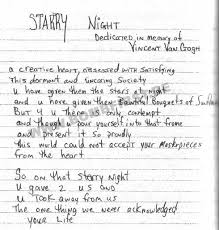 STARRY NIGHT
Dedicated in memory of
Vincent Van Gogh
a creative heart, obsessed with satisfying
This dormant and uncaring society
u have given them the stars at night
and u have given them Bountiful Bouquets of Sunflowers
But 4 u There is only contempt
and though u pour yourself into that frame
and present it so proudly
this world could not accept your Masterpieces
from the heart
So on that starry night
u gave 2 us and
u Took away from us
The one thing we never acknowledged
your Life